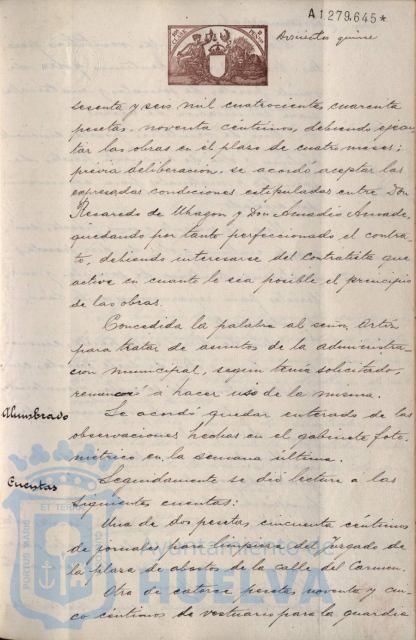 A1.279.645*
Doscientos quince
sesenta y seis mil cuatrocientas cuarenta
pesetas, noventa céntimos, debiendo ejecu-
tar las obras en el plaso de cuatro meses;
previa deliberación, se acordó aceptar las
expresadas condiciones estipuladas entre Don
Recaredo de Uhagon y Don Amadio Amade,
quedando por tanto perfeccionado el contra-
to, debiendo interesarse del contratista que
active en cuanto le sea posible el principio
de las obras.
Concedida la palabra al señor Artés
para tratar de asuntos de la administra-
ción municipal, según tenia solicitado,
renunció á hacer uso de la misma.
Alumbrado
Se acordó quedar enterado de las
observaciones hechas en el gabinete foto-
métrico en la semana última.
Cuentas
Seguidamente se dió lectura á las
siguientes cuentas:
Una de dos pesetas cincuenta céntimos
de jornales para limpieza del Juzgado de
la plaza de abastos de la calle del Carmen.
Otra de catorce pesetas, noventa y cin-
co céntimos de vestuario para la guardia
PORTUS MARIS ET TERRAE CUSTODIA
Ayuntamiento de
HUELVA